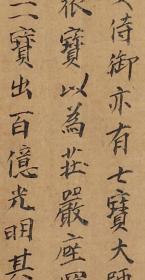 侍御亦有七寶大師
寶以為莊嚴座
寶出百億光明其